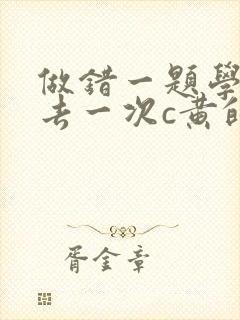 做错一题學
去一次c黄自
胥金章